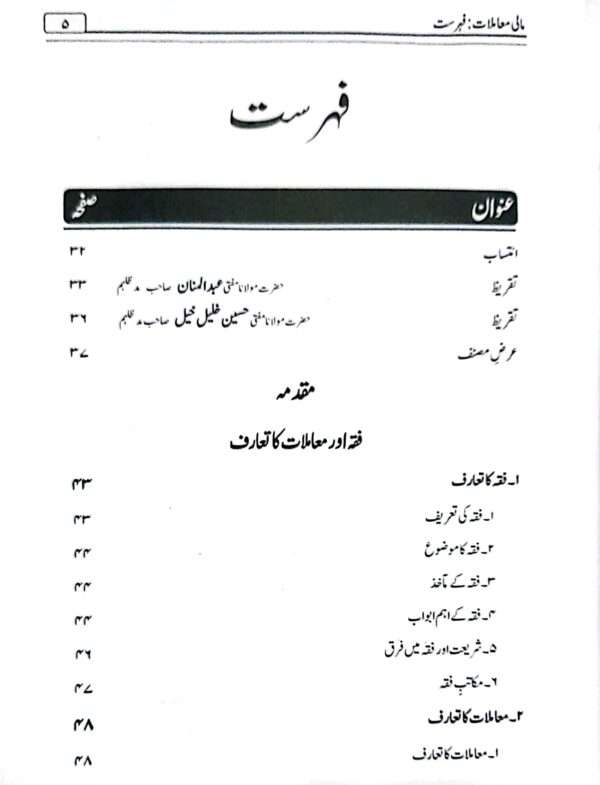 مالی معاملات: فہرست ۵
فہرست
عنوان صفحہ
انتساب ۳۲
تقریظ حضرت مولانا مفتی عبدالمنان صاحب مدظلہم ۳۳
تقریظ حضرت مولانا مفتی حسین خلیل خیل صاحب مدظلہم ۳۶
عرضِ مصنف ۳۷
مقدمہ
فقہ اور معاملات کا تعارف
۱۔ فقہ کا تعارف ۴۳
۱۔ فقہ کی تعریف ۴۳
۲۔ فقہ کا موضوع ۴۴
۳۔ فقہ کے مآخذ ۴۴
۴۔ فقہ کے اہم ابواب ۴۴
۵۔ شریعت اور فقہ میں فرق ۴۶
۶۔ مکاتبِ فقہ ۴۷
۲۔ معاملات کا تعارف ۴۸
۱۔ معاملات کا تعارف ۴۸